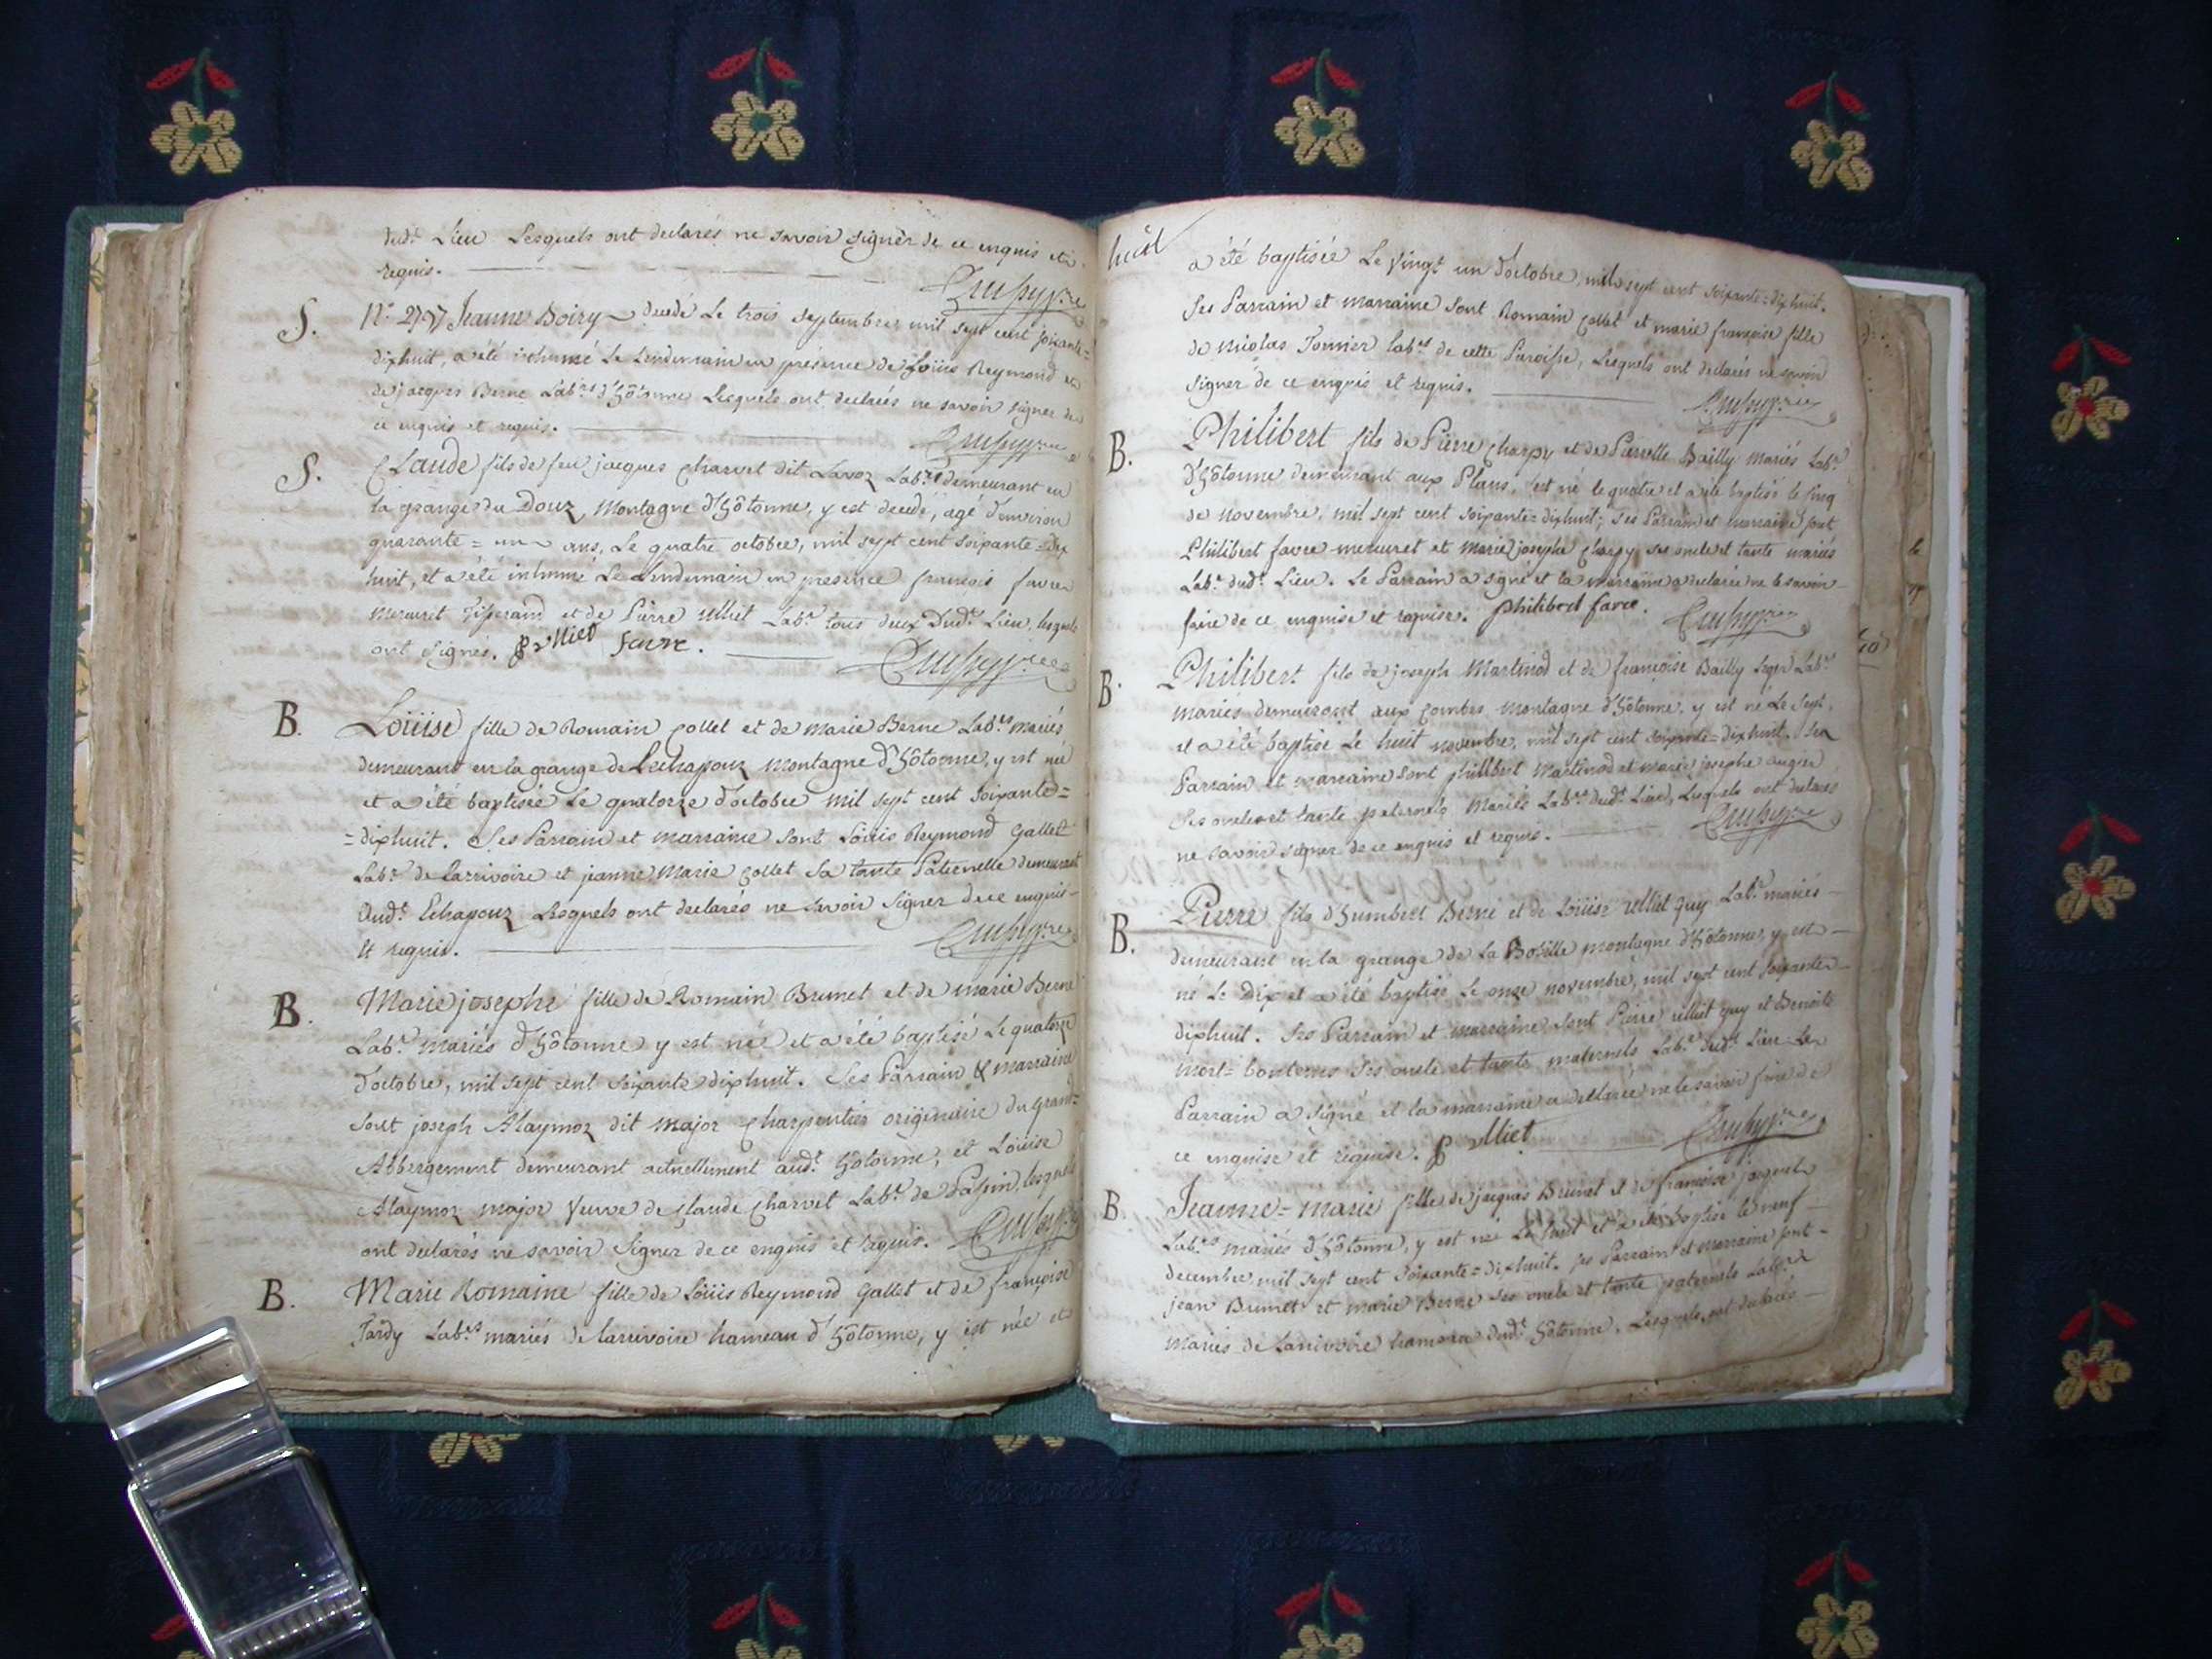 dud.t Lieu Lesquels ont declarés ne savoir signer de ce enquis et
requis.
S. N.o 297 Jeanne Boiry decedé Le trois septembre mil sept cent soixante=
dixhuit, a été inhumé Le Lendemain en présence de Loüis Reymond et
de jacques Berne Lab.rs d'hôtonne Lesquels ont declarés ne savoir signer de
ce enquis et requis.
S. Claude fils de feu jacques Charvet dit Lavoz Lab.r demeurant en
la grange du Douz Montagne d'hôtonne, y est decedé, agé d'environ
quarante = un ans, Le quatre octobre, mil sept cent soixante = dix
huit, et a été inhumé Le Lendemain en presence françois favre
mercuret Tisserand et de Pierre ulliet Lab.r tous deux Dud.t Lieu, lesquels
ont signés. P ulliet favre.
B. Loüise fille de Romain Collet et de Marie Berne Lab.rs mariés
demeurant en la grange de Lechapouz Montagne d'hôtonne, y est née
et a été baptisée Le quatorze d'octobre mil sept cent soixante=
=dixhuit. Ses Parrain et marraine sont Loüis Reymond Gallet
Lab.r de Larrivoire et jeanne Marie Collet sa tante Paternelle demeurant
Aud.t Echapouz Lesquels ont declarés ne savoir signer de ce enquis
et requis.
B. Marie josephe fille de Romain Brunet et de marie Berne
Lab.rs mariés d'hôtonne y est née et a été baptisé Le quatorze
d'octobre, mil sept cent soixante dixhuit. Ses Parrain & marraine
sont joseph Alaymoz dit major Charpentier originaire du grand
Abbergement demeurant actuellement aud.t hôtonne, et Loüise
Alaymoz major Veuve de Claude Charvet Lab.r de Passin, lesquels
ont declarés ne savoir signer de ce enquis et requis.
B. Marie Romaine fille de Loüis Reymond Gallet et de françoise
Tardy Lab.rs mariés de Larrivoire hameau d'hôtonne, y est née et
huit
a été baptisée Le vingt un d'octobre, mil sept cent soixante=dixhuit.
Ses Parrain et marraine sont Romain Collet et marie françoise fille
de nicolas Tonnier Lab.rs de cette Paroisse, Lesquels ont declarés ne savoir
signer de ce enquis et requis.
B. Philibert fils de Pierre Charpy et de Pierrette Bailly mariés Lab.rs
d'hôtonne demeurant aux Plans, est né le quatre et a été baptisé le cinq
de novembre, mil sept cent soixante=dixhuit; ses Parrain et marraine sont
Philibert favre mercuret et Marie josephe Charpy ses oncle et tante mariés
Lab.rs dud.t Lieu. Le Parrain a signé et la marraine a declarée ne le savoir
faire de ce enquise et requise. philibert favre.
B. Philibert fils de joseph Martinod et de françoise Bailly Lab.rs
mariés demeurant aux Combes Montagne d'hôtonne, y est né Le sept,
et a été baptisé Le huit novembre, mil sept cent soixante=dixhuit. Ses
Parrain et marraine sont philibert Martinod et marie josephe augier
ses oncle et tante paternels Mariés Lab.rs dud.t Lieu, Lesquels ont declarés
ne savoir signer de ce enquis et requis.
B. Pierre fils d'humbert Berne et de Loüise ulliet guy Lab.rs mariés
demeurant en la grange de La montagne d'hôtonne, y est
né Le Dix et a été baptisé Le onze novembre, mil sept cent soixante
dixhuit. Ses Parrain et marraine sont Pierre ulliet guy et Benoite
mort=boutemps ses oncle et tante maternels Lab.rs dud.t Lieu Le
Parrain a signé et la marraine a declarée ne le savoir faire de
ce enquise et requise. P ulliet
B. Jeanne=marie fille de jacques Brunet et de françoise jacquet
Lab.rs mariés d'hôtonne, y est née Le huit et a été baptisé le neuf
decembre mil sept cent soixante=dixhuit. ses Parrain et marraine sont
jean Brunet et marie Berne ses oncle et tante paternels Lab.rs
Mariés de Larrivoire hameau dud.t hôtonne, Lesquels ont declarés